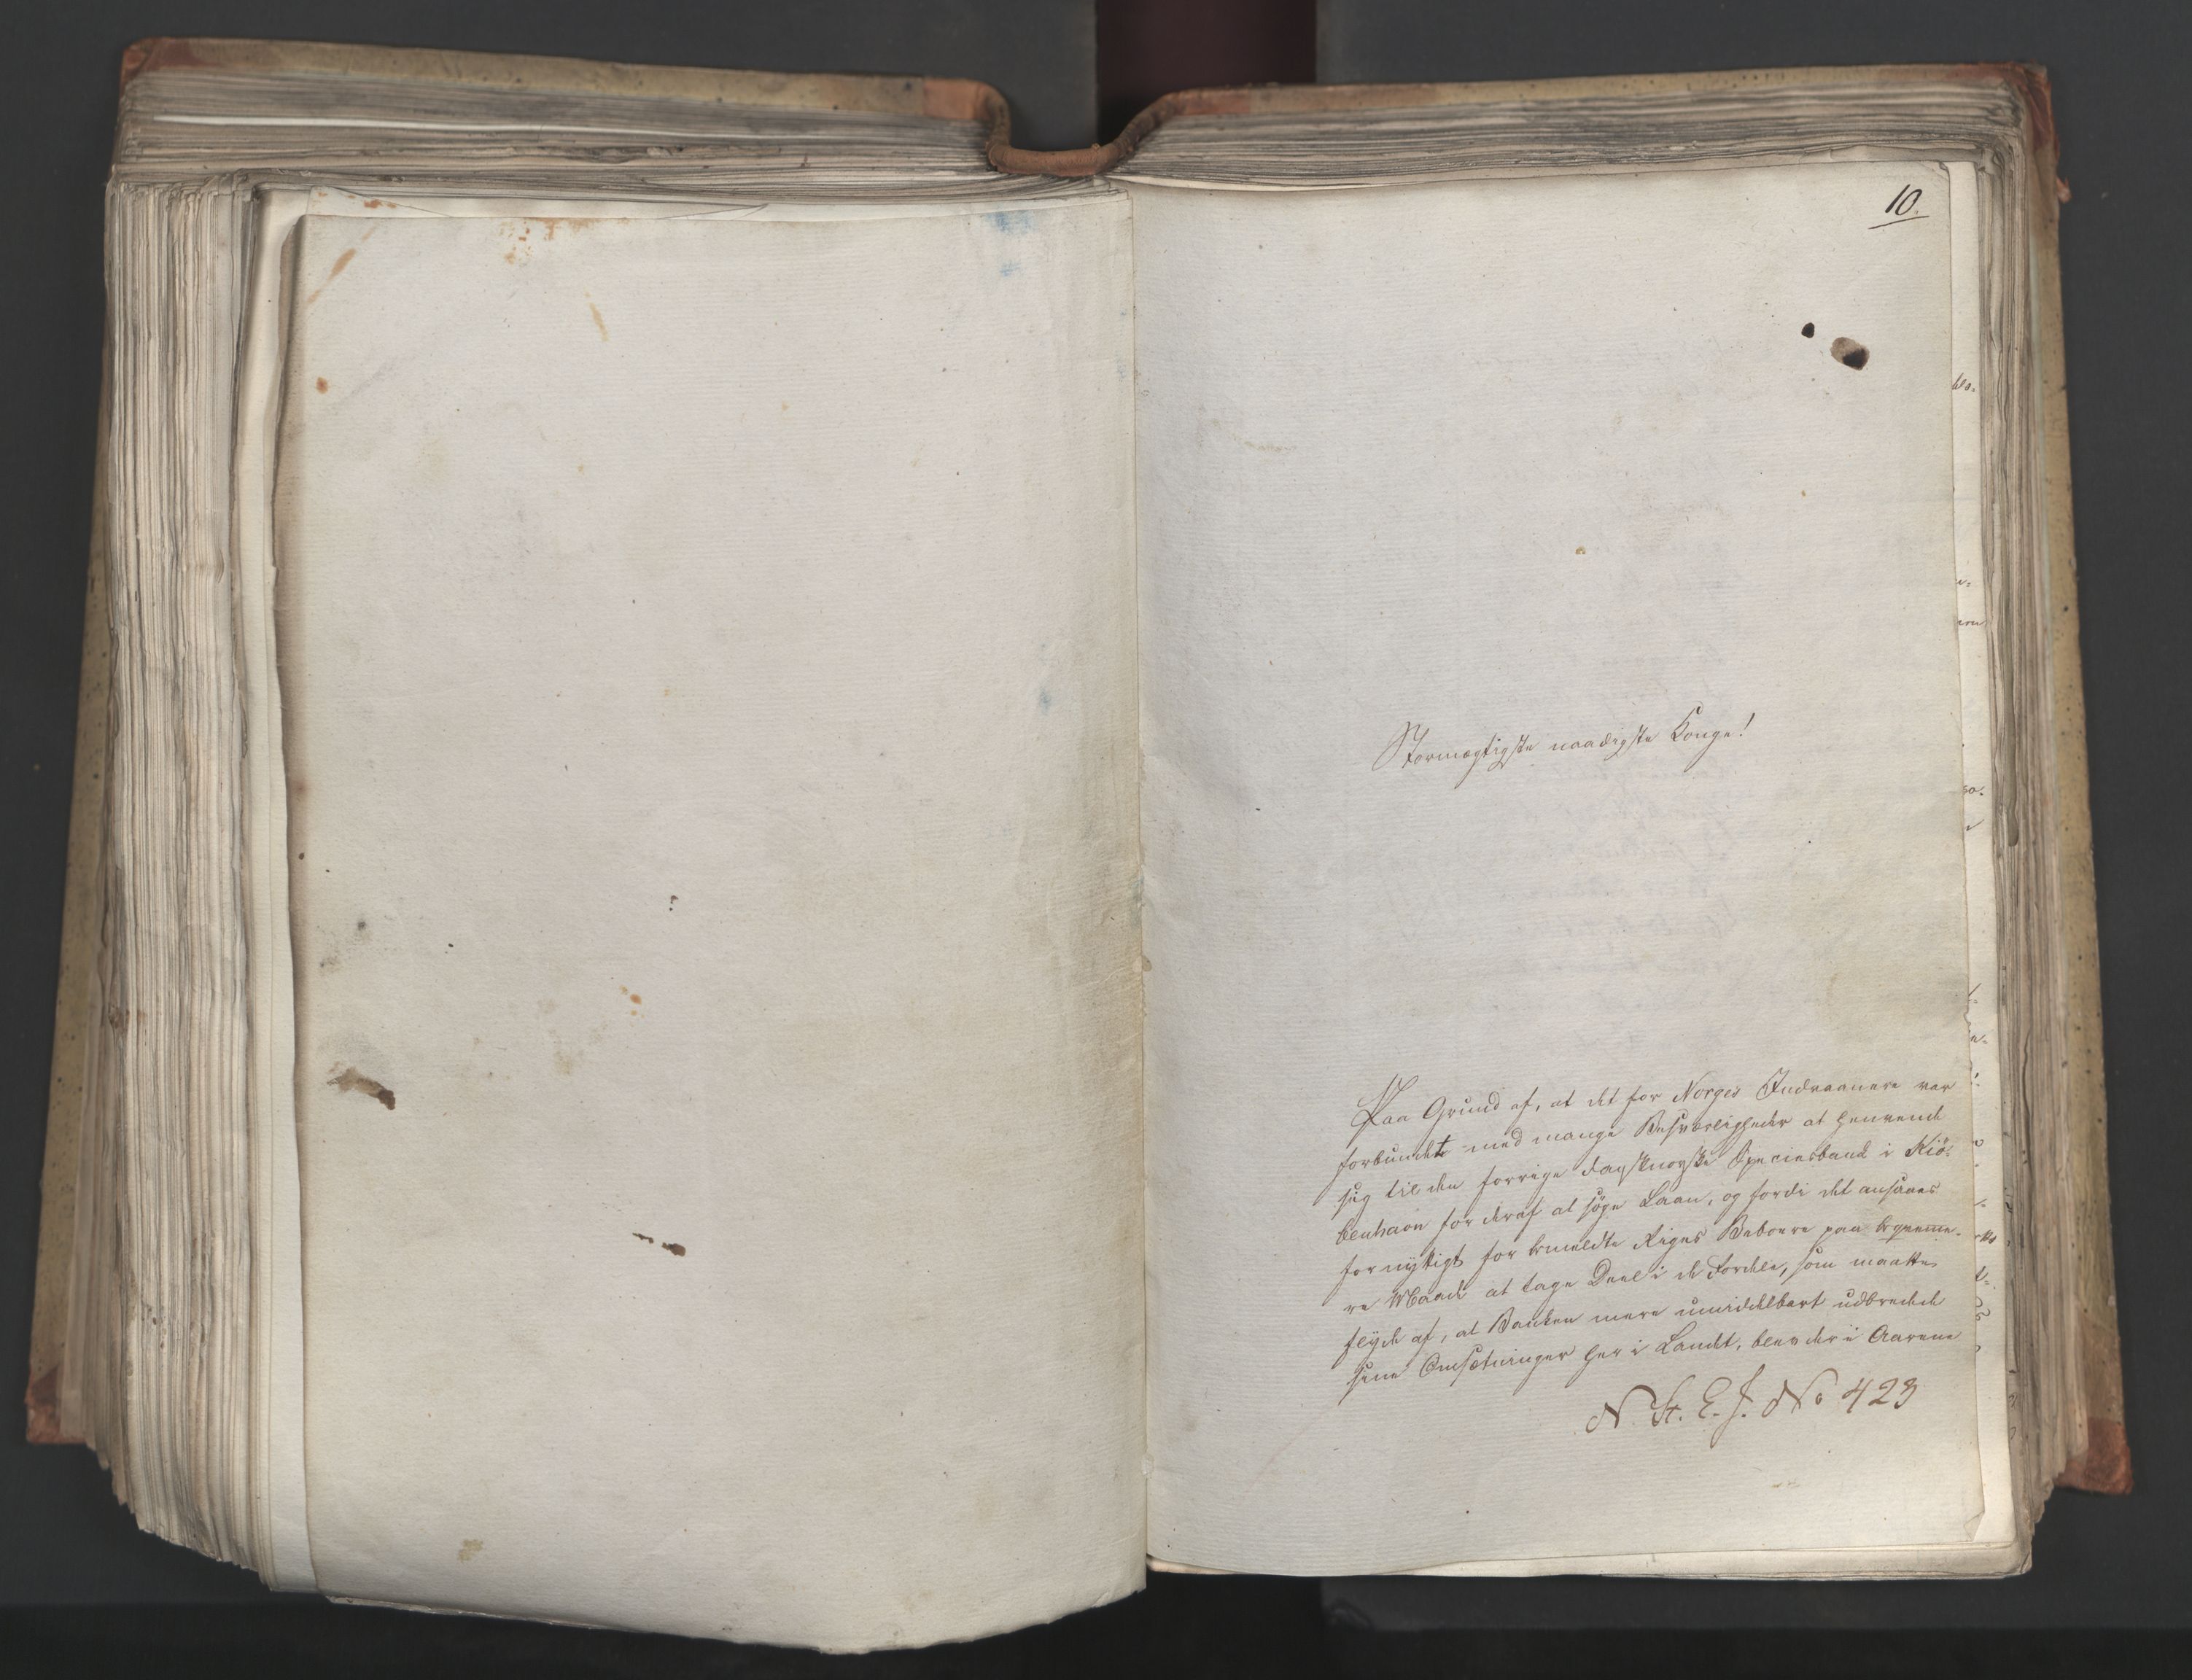 10.
Stormægtigste naadigste Konge!
Paa Grund af, at det for Norges Indvaanere var
forbundet med mange Besværligheder at henvende
sig til den forrige dansknorske Speciesbank i Kiö-
benhavn for deraf at söge Laan, og fordi det ansaaes
for nyttigt for bemeldte Riges Beboere paa beqvemme-
re Maade at tage Deel i de Fordele, som maatte
flyde af, at Banken mere umiddelbart udbredede
sine Omsætninger her i Landet, blev der i Aarene
N. St. E. J. No 423